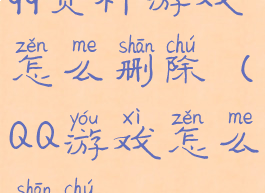 qq资料游戏
zěn me shān chú
怎么删除（
yóu xì zěn me
QQ游戏怎么
shān chú